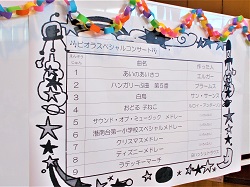 ビオラスペシャルコンサート
曲名 作った人
1 あいのあいさつ エルガー
2 ハンガリー舞曲 第5番 ブラームス
3 白鳥 サン・サーンス
4 おどる 子ねこ
5 サウンド・オブ・ミュージック メドレー
6 第一小学校スペシャルメドレー
7 クリスマスメドレー
8 ディズニーメドレー
9 ラデッキーマーチ